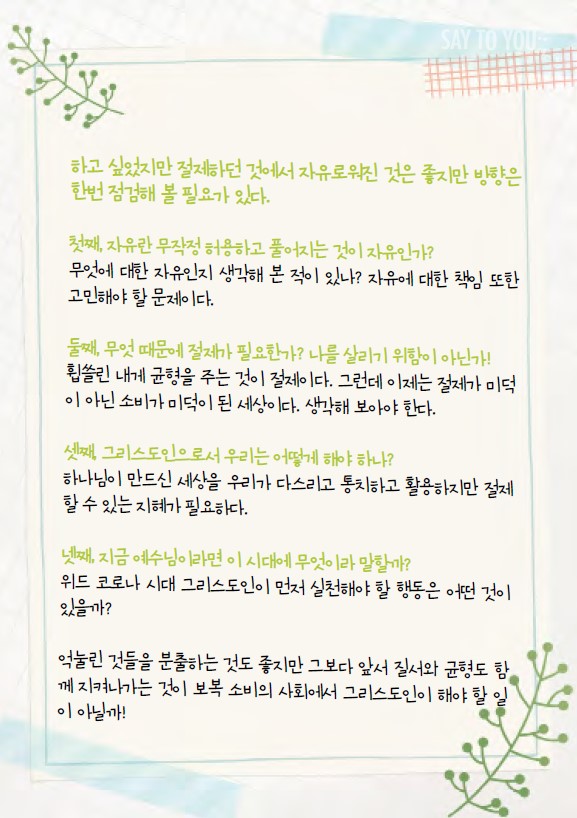 SAY TO YOU
하고 싶었지만 절제하던 것에서 자유로워진 것은 좋지만 방향은
한번 점검해 볼 필요가 있다.
첫째, 자유란 무작정 허용하고 풀어지는 것이 자유인가?
무엇에 대한 자유인지 생각해 본 적이 있나? 자유에 대한 책임 또한
고민해야 할 문제이다.
둘째, 무엇 때문에 절제가 필요한가? 나를 살리기 위함이 아닌가!
휩쓸린 내게 균형을 주는 것이 절제이다. 그런데 이제는 절제가 미덕
이 아닌 소비가 미덕이 된 세상이다. 생각해 보아야 한다.
셋째, 그리스도인으로서 우리는 어떻게 해야 하나?
하나님이 만드신 세상을 우리가 다스리고 통치하고 활용하지만 절제
할 수 있는 지혜가 필요하다.
넷째, 지금 예수님이라면 이 시대에 무엇이라 말할까?
위드 코로나 시대 그리스도인이 먼저 실천해야 할 행동은 어떤 것이
있을까?
억눌린 것들을 분출하는 것도 좋지만 그보다 앞서 질서와 균형도 함
께 지켜나가는 것이 보복 소비의 사회에서 그리스도인이 해야 할 일
이 아닐까!